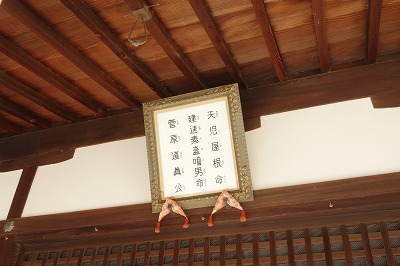 天児屋根命
建速素盞嗚男命
菅原道眞公